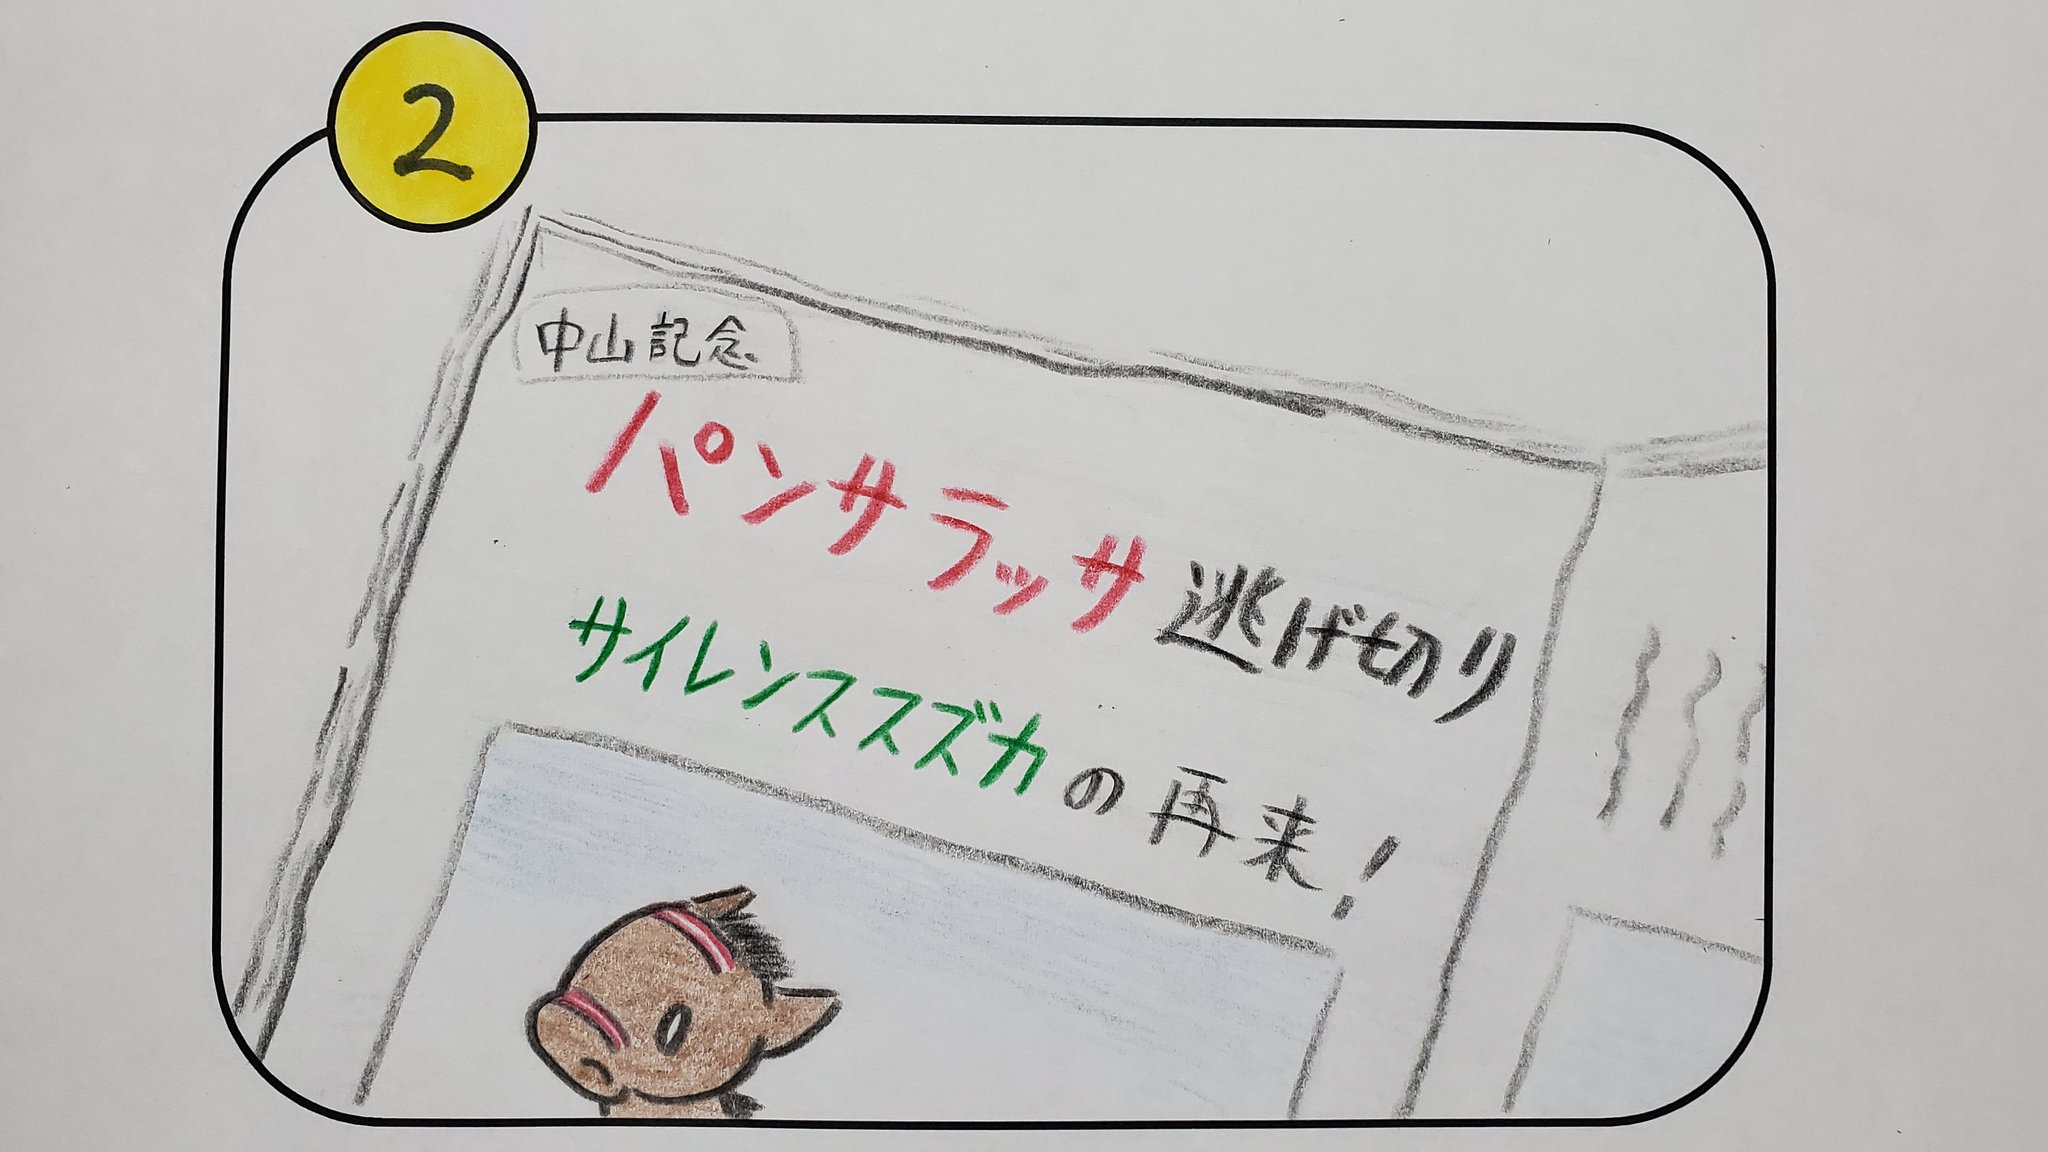 2
中山記念
パンサラッサ逃げ切り
サイレンススズカの再来!